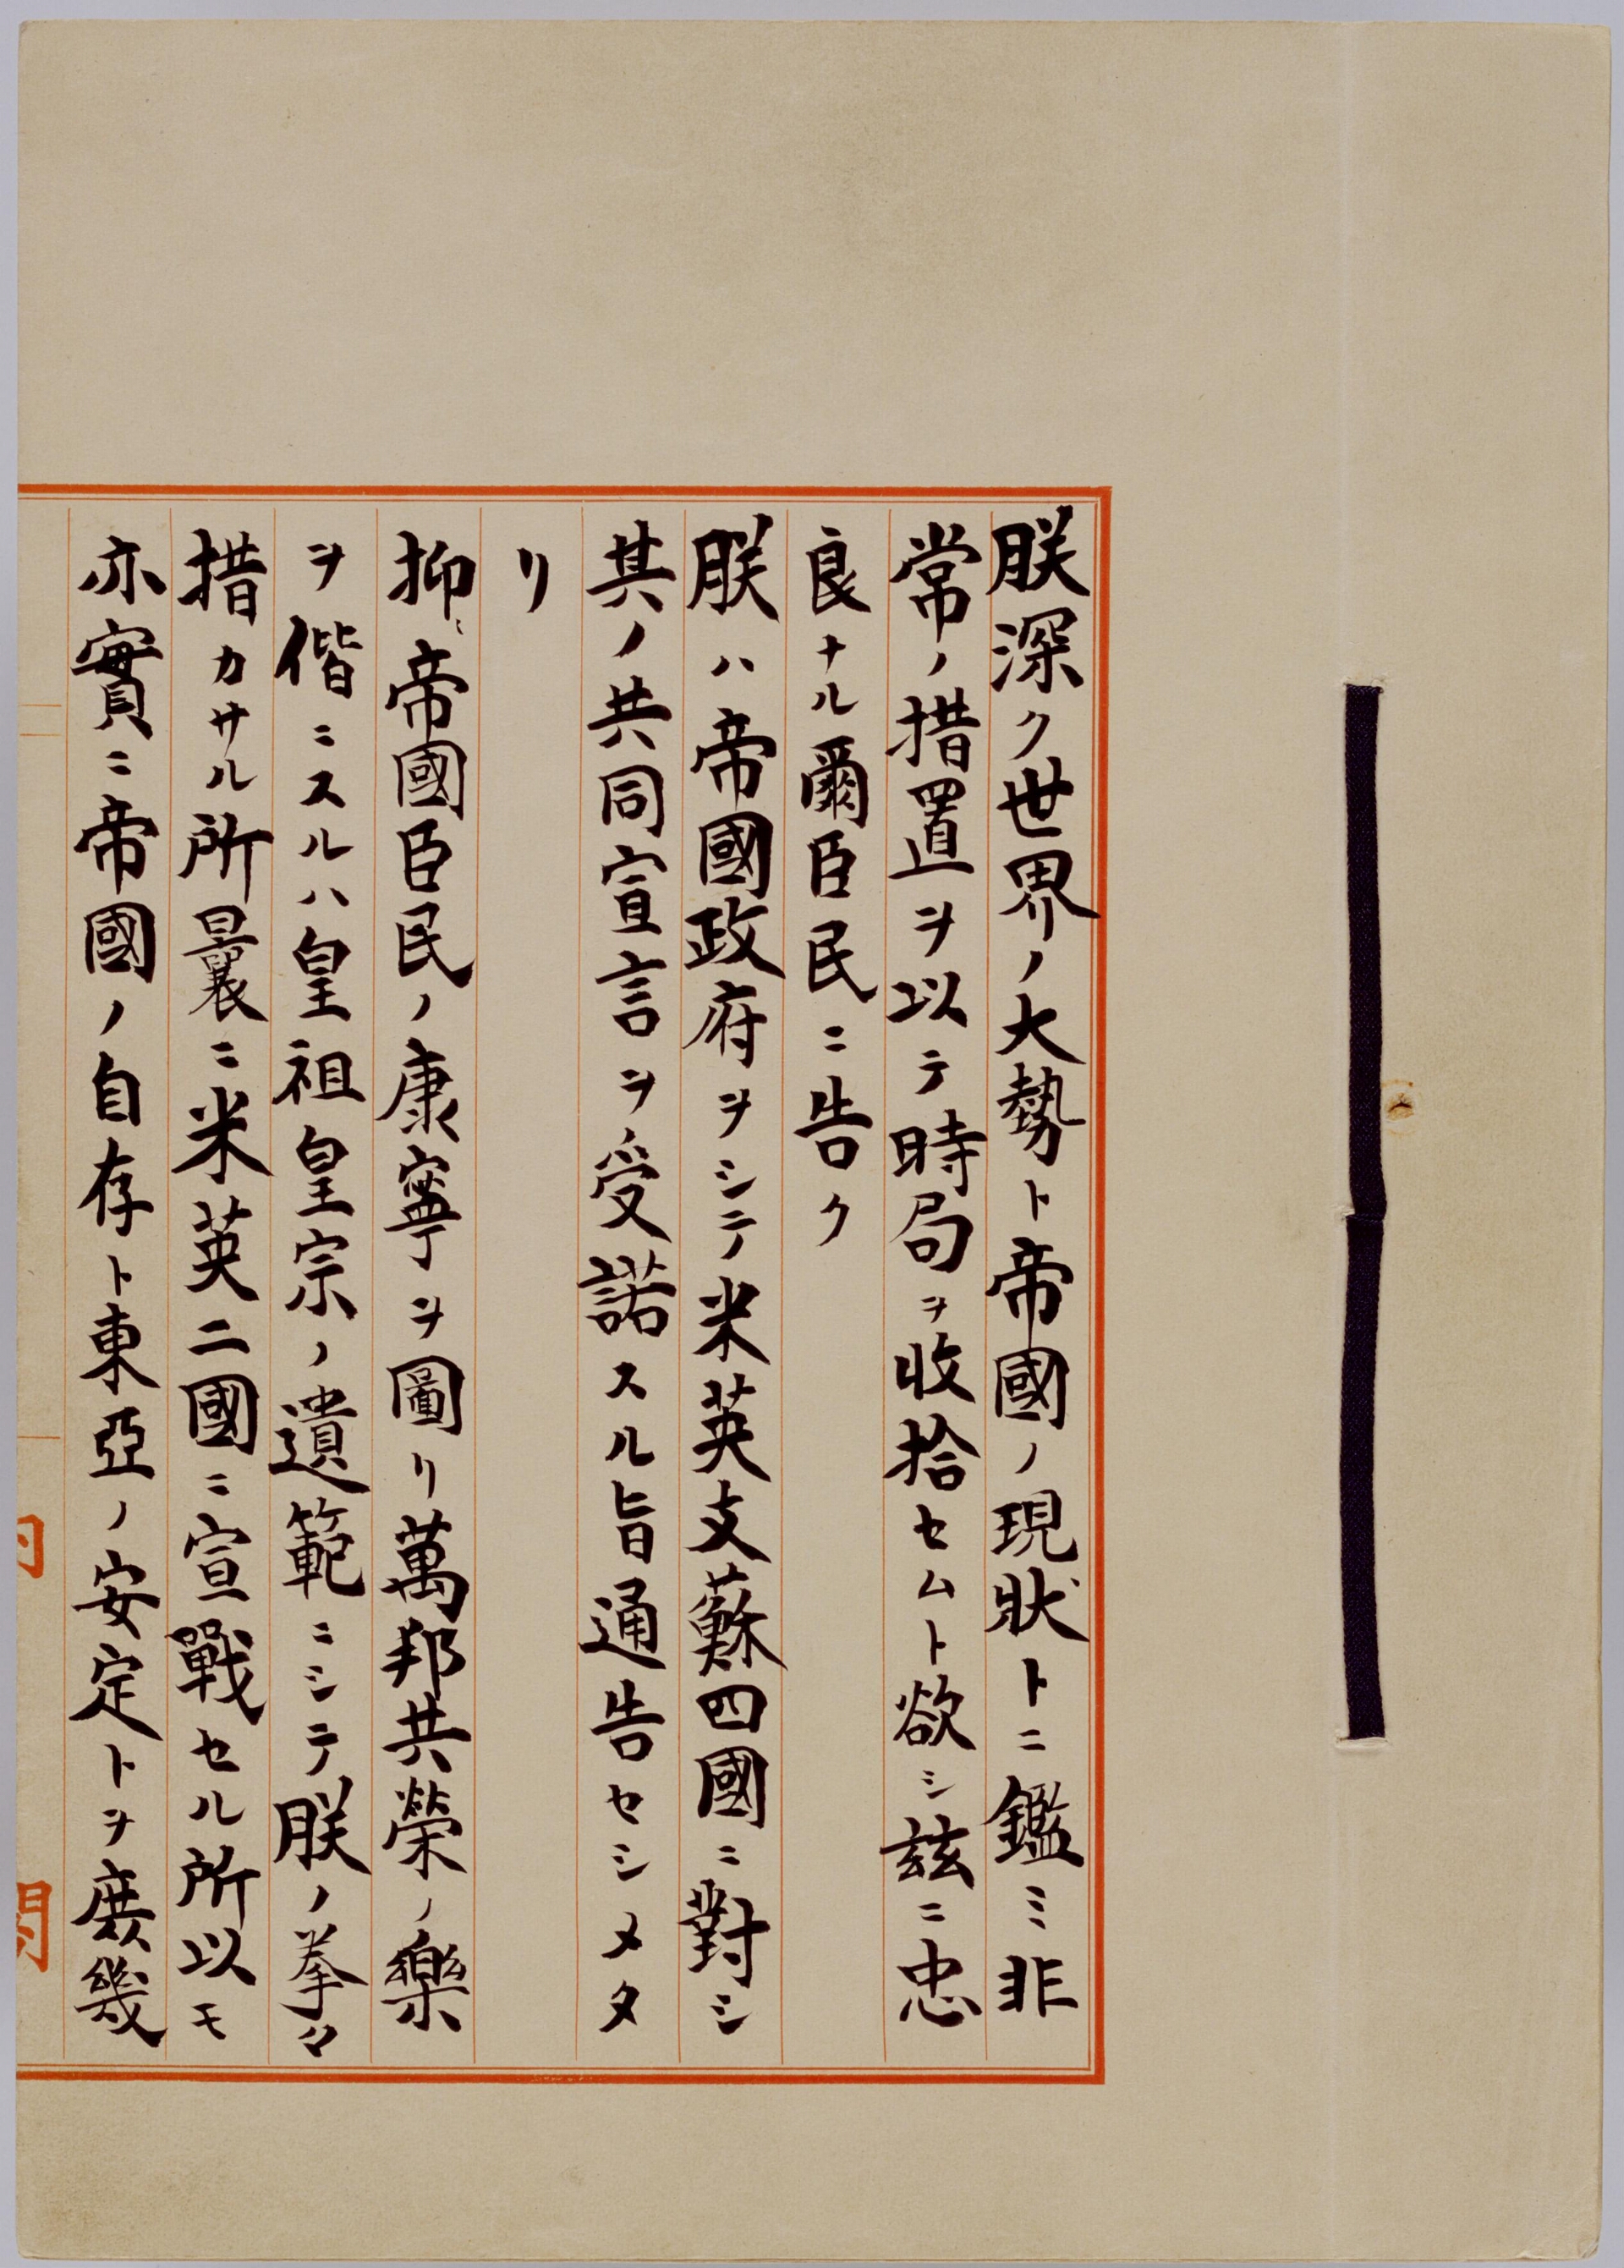 朕深ク世界ノ大勢ト帝國ノ現狀トニ鑑ミ非
常ノ措置ヲ以テ時局ヲ收拾セムト欲シ玆ニ忠
良ナル爾臣民ニ告ク
朕ハ帝國政府ヲシテ米英支蘇四國ニ對シ
其ノ共同宣言ヲ受諾スル旨通告セシメタ
リ
抑〻帝國臣民ノ康寧ヲ圖リ萬邦共榮ノ樂
ヲ偕ニスルハ皇祖皇宗ノ遺範ニシテ朕ノ拳々
措カサル所曩ニ米英二國ニ宣戰セル所以モ
亦實ニ帝國ノ自存ト東亞ノ安定トヲ庶幾